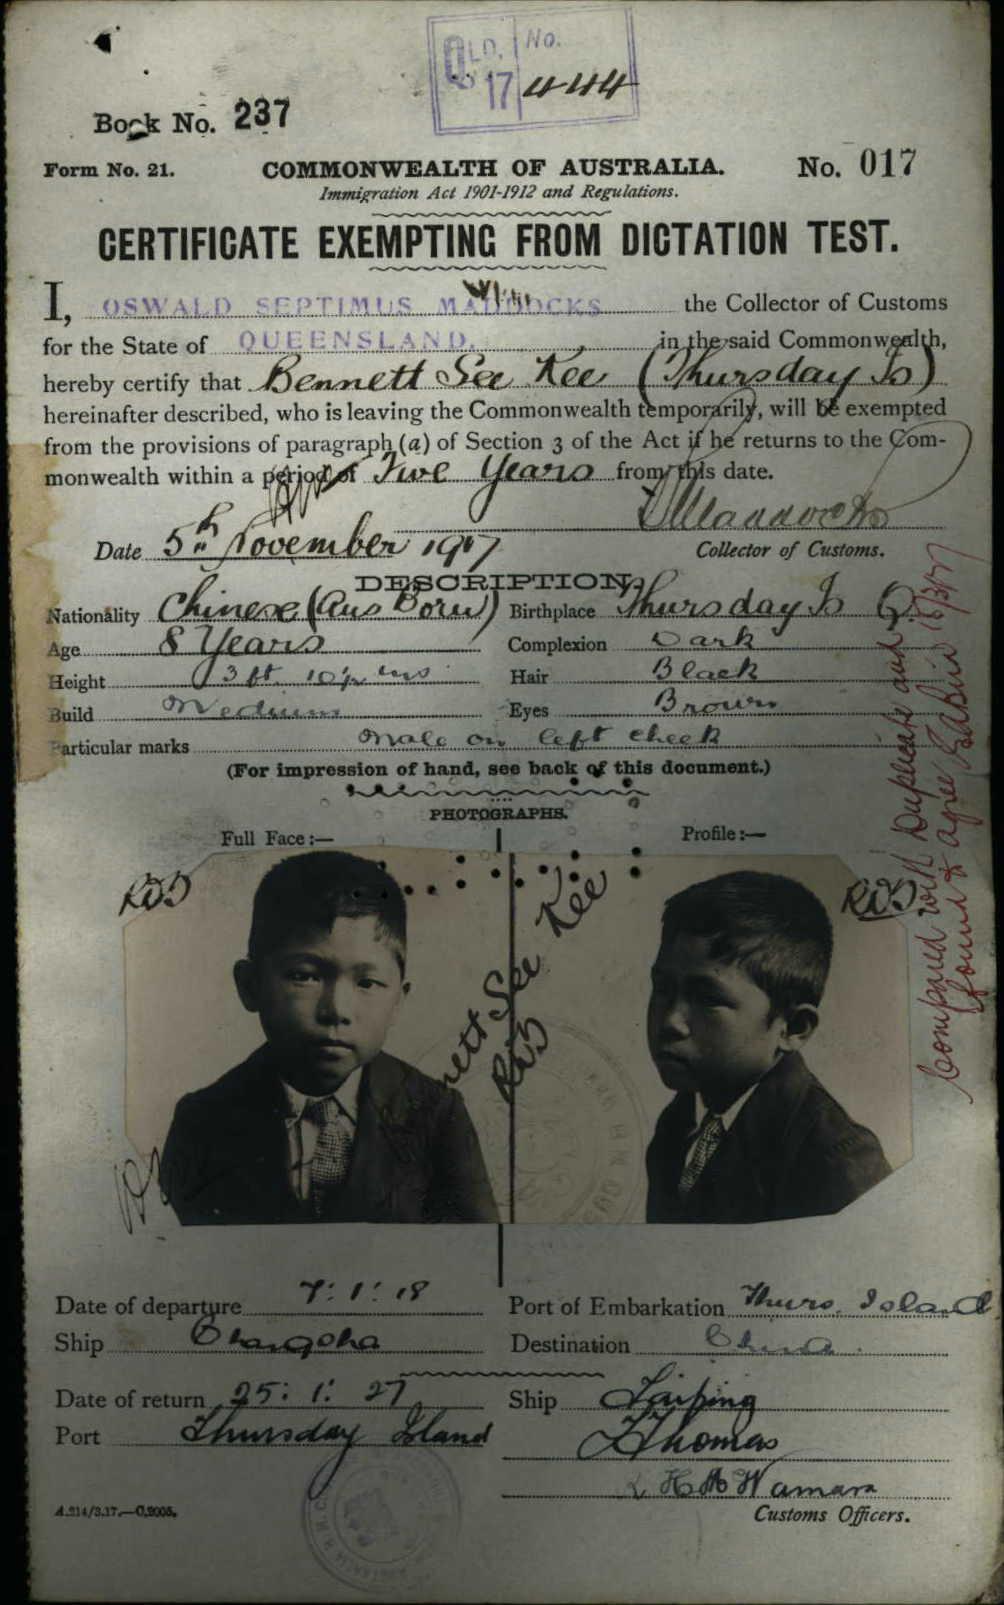 QLD. No.
17 444
Book No. 237
Form No. 21. COMMONWEALTH OF AUSTRALIA. No. 017
Immigration Act 1901-1912 and Regulations.
CERTIFICATE EXEMPTING FROM DICTATION TEST.
I, OSWALD SEPTIMUS MADDOCKS the Collector of Customs
for the State of QUEENSLAND. in the said Commonwealth,
hereby certify that Bennett See Kee (Thursday Is)
hereinafter described, who is leaving the Commonwealth temporarily, will be exempted
from the provisions of paragraph (a) of Section 3 of the Act if he returns to the Com-
monwealth within a period of Five Years from this date.
Date 5th November 1917 Collector of Customs.
DESCRIPTION.
Nationality Chinese (Aus Born) Birthplace Thursday Is Q
Age 8 Years Complexion Dark
Height 3 ft. 10½ ins Hair Black
Build Medium Eyes Brown
Particular marks Mole on left cheek
(For impression of hand, see back of this document.)
PHOTOGRAPHS.
Full Face:— Profile:—
Bennett See Kee
Compared with Duplicate and
found to agree
Date of departure 7: 1: 18 Port of Embarkation Thurs. Island
Ship Changsha Destination China.
Date of return 25: 1: 27 Ship Taiping
Port Thursday Island Thomas
Customs Officers.
A.214/3.17.—C.9005.